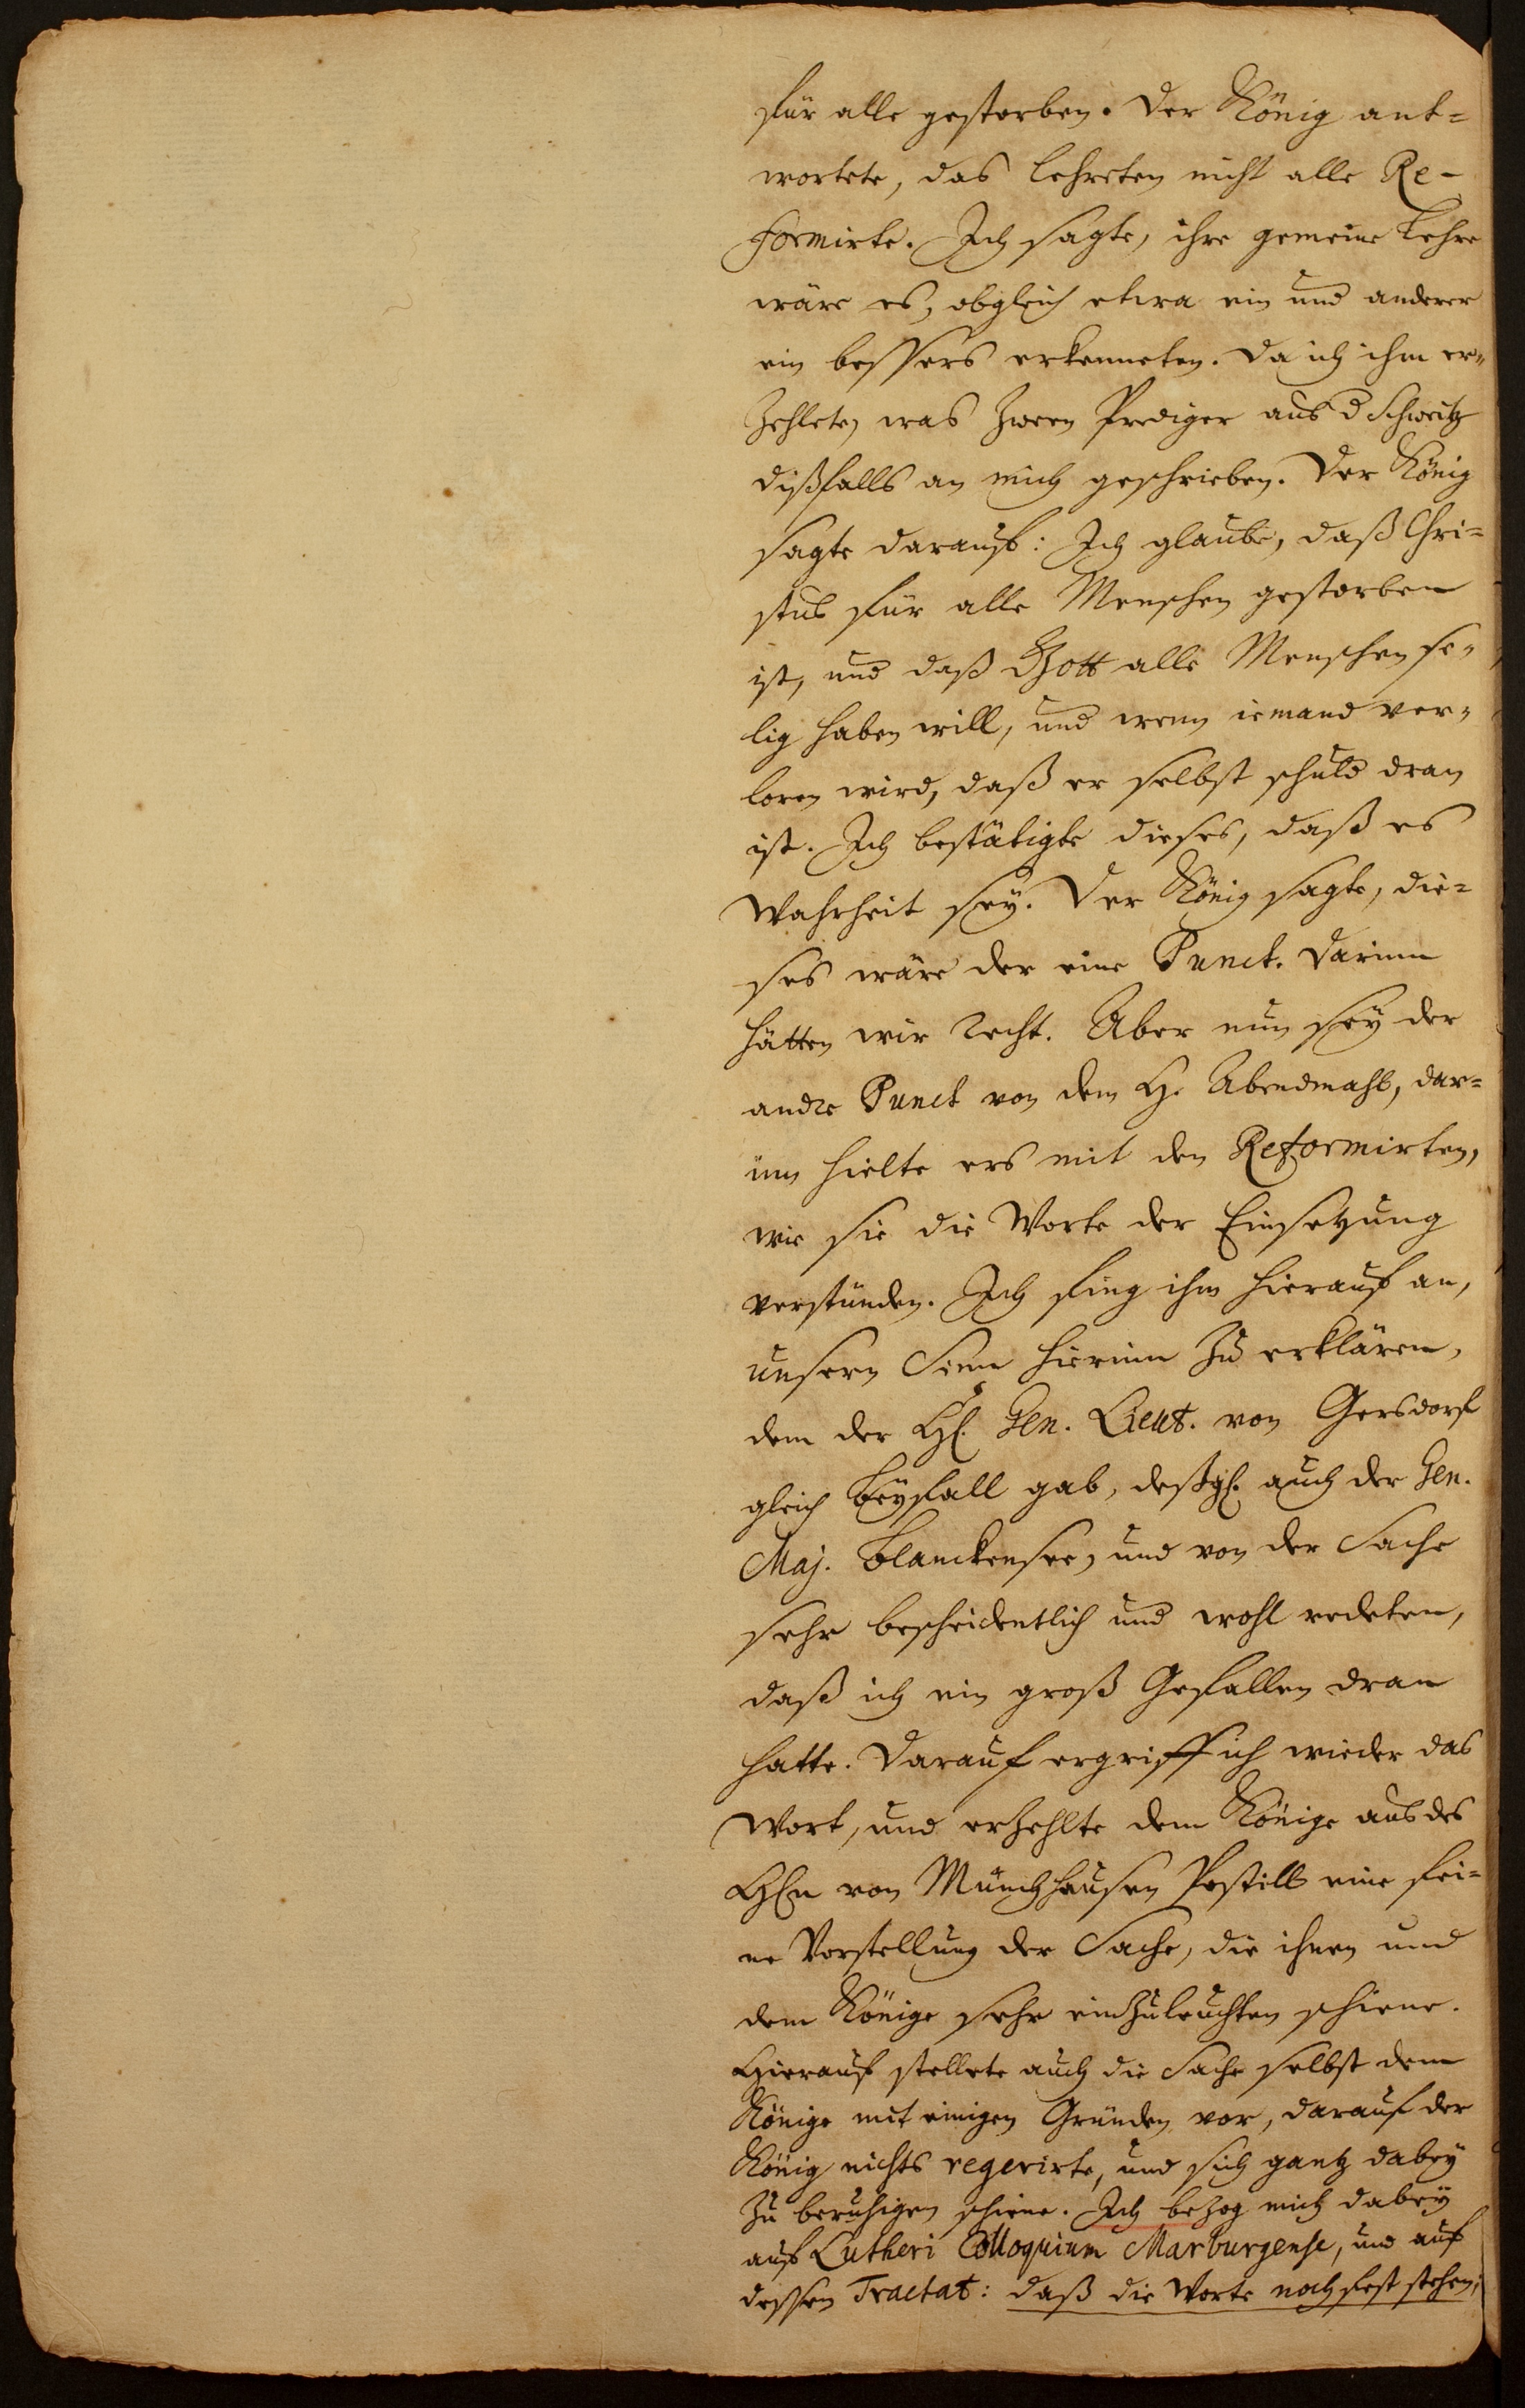 für alle gestorben. Der König ant=
wortete, das lehreten nicht alle Re-
formirte. Ich sagte, ihre gemeine Lehre
wäre es, obgleich etwa ein und anderer
ein bessers erkenneten. Da ich ihm er=
zehlete, was zween Prediger aus d Schweitz
dißfalls an mich geschrieben. Der König
sagte darauf: Ich glaube, daß Chri=
stus für alle Menschen gestorben
ist, und daß Gott alle Menschen se=
lig haben will, und wenn iemand ver=
loren wird, daß er selbst schuld dran
ist. Ich bestätigte dieses, daß es
Wahrheit sey. Der König sagte, die=
ses wäre der eine Punct. Darinn
hätten wir Recht. Aber nun sey der
andre Punct von dem H. Abendmahl, dar=
inn hielte ers mit den Reformirten,
wie sie die Worte der Einsetzung
verstünden. Ich fing ihm hierauf an,
unsern Sinn hierinn zu erklären,
dem der H. Gen. Lieut. von Gersdorf
gleich Beyfall gab, deßgl. auch der Gen.
Maj. Blanckensee, und von der Sache
sehr bescheidentlich und wohl redeten,
daß ich ein groß Gefallen dran
hatte. Darauf ergriff ich wieder das
Wort, und erzehlte dem Könige aus des
HEn von Münchhausen Postill eine fei=
ne Vorstellung der Sache, die ihnen und
dem Könige sehr einzuleuchten schiene.
Hierauf stellete auch die Sache selbst dem
Könige mit einigen Gründen vor, darauf der
König nichts regerirte, und sich gantz dabey
zu beruhigen schiene. Ich bezog mich dabey
auf Lutheri Colloquium Marburgense, und auf
dessen Tractat: daß die Worte noch fest stehen,